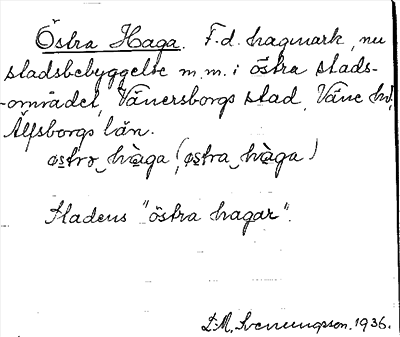 Östra Haga. F.d. hagmark, nu
stadsbebyggelse m.m. i östra stads-
-området, Vänersborgs stad, Väne hd,
Älfsborgs län.
östra haga (östra haga)
Stadens "östra hagar".
D.M. Svenungsson. 1936.